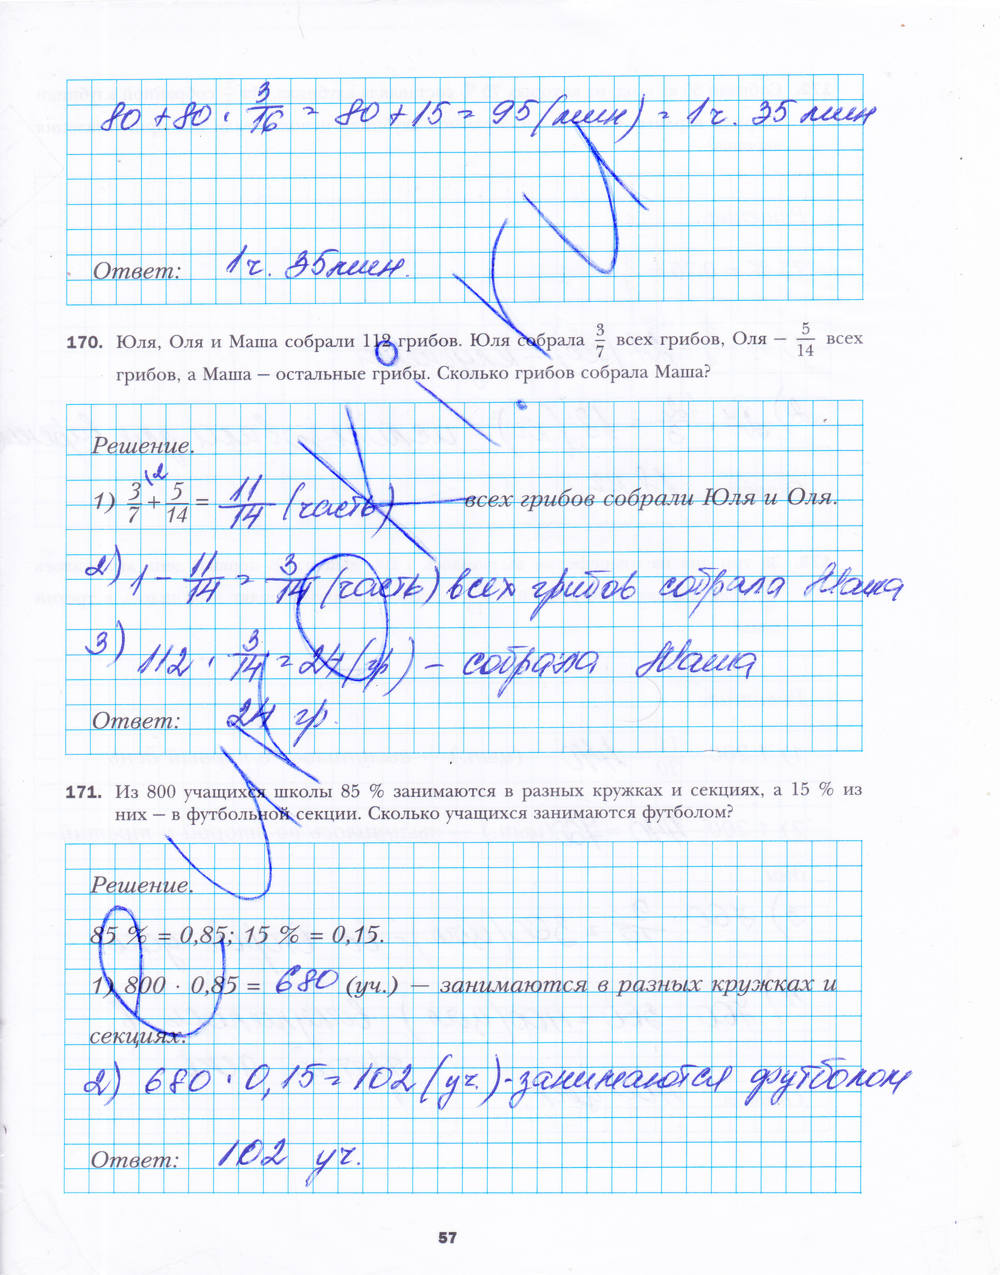 80 + 80 · 3/16 = 80 + 15 = 95 (мин) = 1 ч. 35 мин
Ответ: 1 ч. 35 мин.
170. Юля, Оля и Маша собрали 112 грибов. Юля собрала 3/7 всех грибов, Оля — 5/14 всех
грибов, а Маша — остальные грибы. Сколько грибов собрала Маша?
Решение.
1) 3/7 \2 + 5/14 = 11/14 (часть) — всех грибов собрали Юля и Оля.
2) 1 − 11/14 = 3/14 (часть) всех грибов собрала Маша
3) 112 · 3/14 = 24 (гр) – собрала Маша
Ответ: 24 гр.
171. Из 800 учащихся школы 85 % занимаются в разных кружках и секциях, а 15 % из
них — в футбольной секции. Сколько учащихся занимаются футболом?
Решение.
85 % = 0,85; 15 % = 0,15.
1) 800 · 0,85 = 680 (уч.) — занимаются в разных кружках и
секциях.
2) 680 · 0,15 = 102 (уч.) - занимаются футболом
Ответ: 102 уч.
57